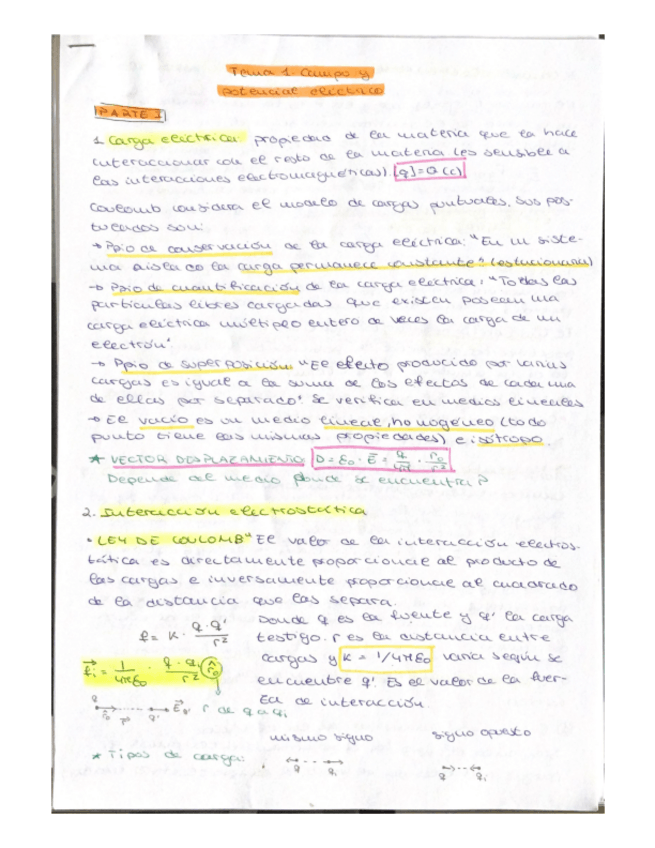 Tema 1. Campo y
potencial eléctrico
PARTE I
1. Carga eléctrica: propiedad de la materia que la hace
interaccionar con el resto de la materia (es sensible a
las interacciones electromagnéticas) [q]=Q (C)
Coulomb considera el modelo de cargas puntuales. Sus pos-
tulados son:
→ Ppio de conservación de la carga eléctrica: "En un siste-
ma aislado la carga permanece constante" (estacionaria)
→ Ppio de cuantificación de la carga eléctrica: "Todas las
partículas libres cargadas que existen poseen una
carga eléctrica múltiplo entero de veces la carga de un
electrón"
→ Ppio de superposición "El efecto producido por varias
cargas es igual a la suma de los efectos de cada una
de ellas por separado". Se verifica en medios lineales
→ El vacío es un medio lineal, homogéneo (todo
punto tiene las mismas propiedades) e isótropo.
* VECTOR DESPLAZAMIENTO D = ε0 · E = q/4π · r0/r²
Depende del medio donde se encuentra P
2. Interacción electrostática
· LEY DE COULOMB "El valor de la interacción electros-
tática es directamente proporcional al producto de
las cargas e inversamente proporcional al cuadrado
de la distancia que las separa.
f = K · q·q'/r²
Donde q es la fuente y q' la carga
testigo. r es la distancia entre
cargas y K = 1/4πε0 varía según se
encuentre q'. Es el valor de la fuer-
za de interacción.
fi = 1/4πε0 · q·qi/r² r0
r de q a qi
mismo signo signo opuesto
* Tipos de carga:
q qi q qi